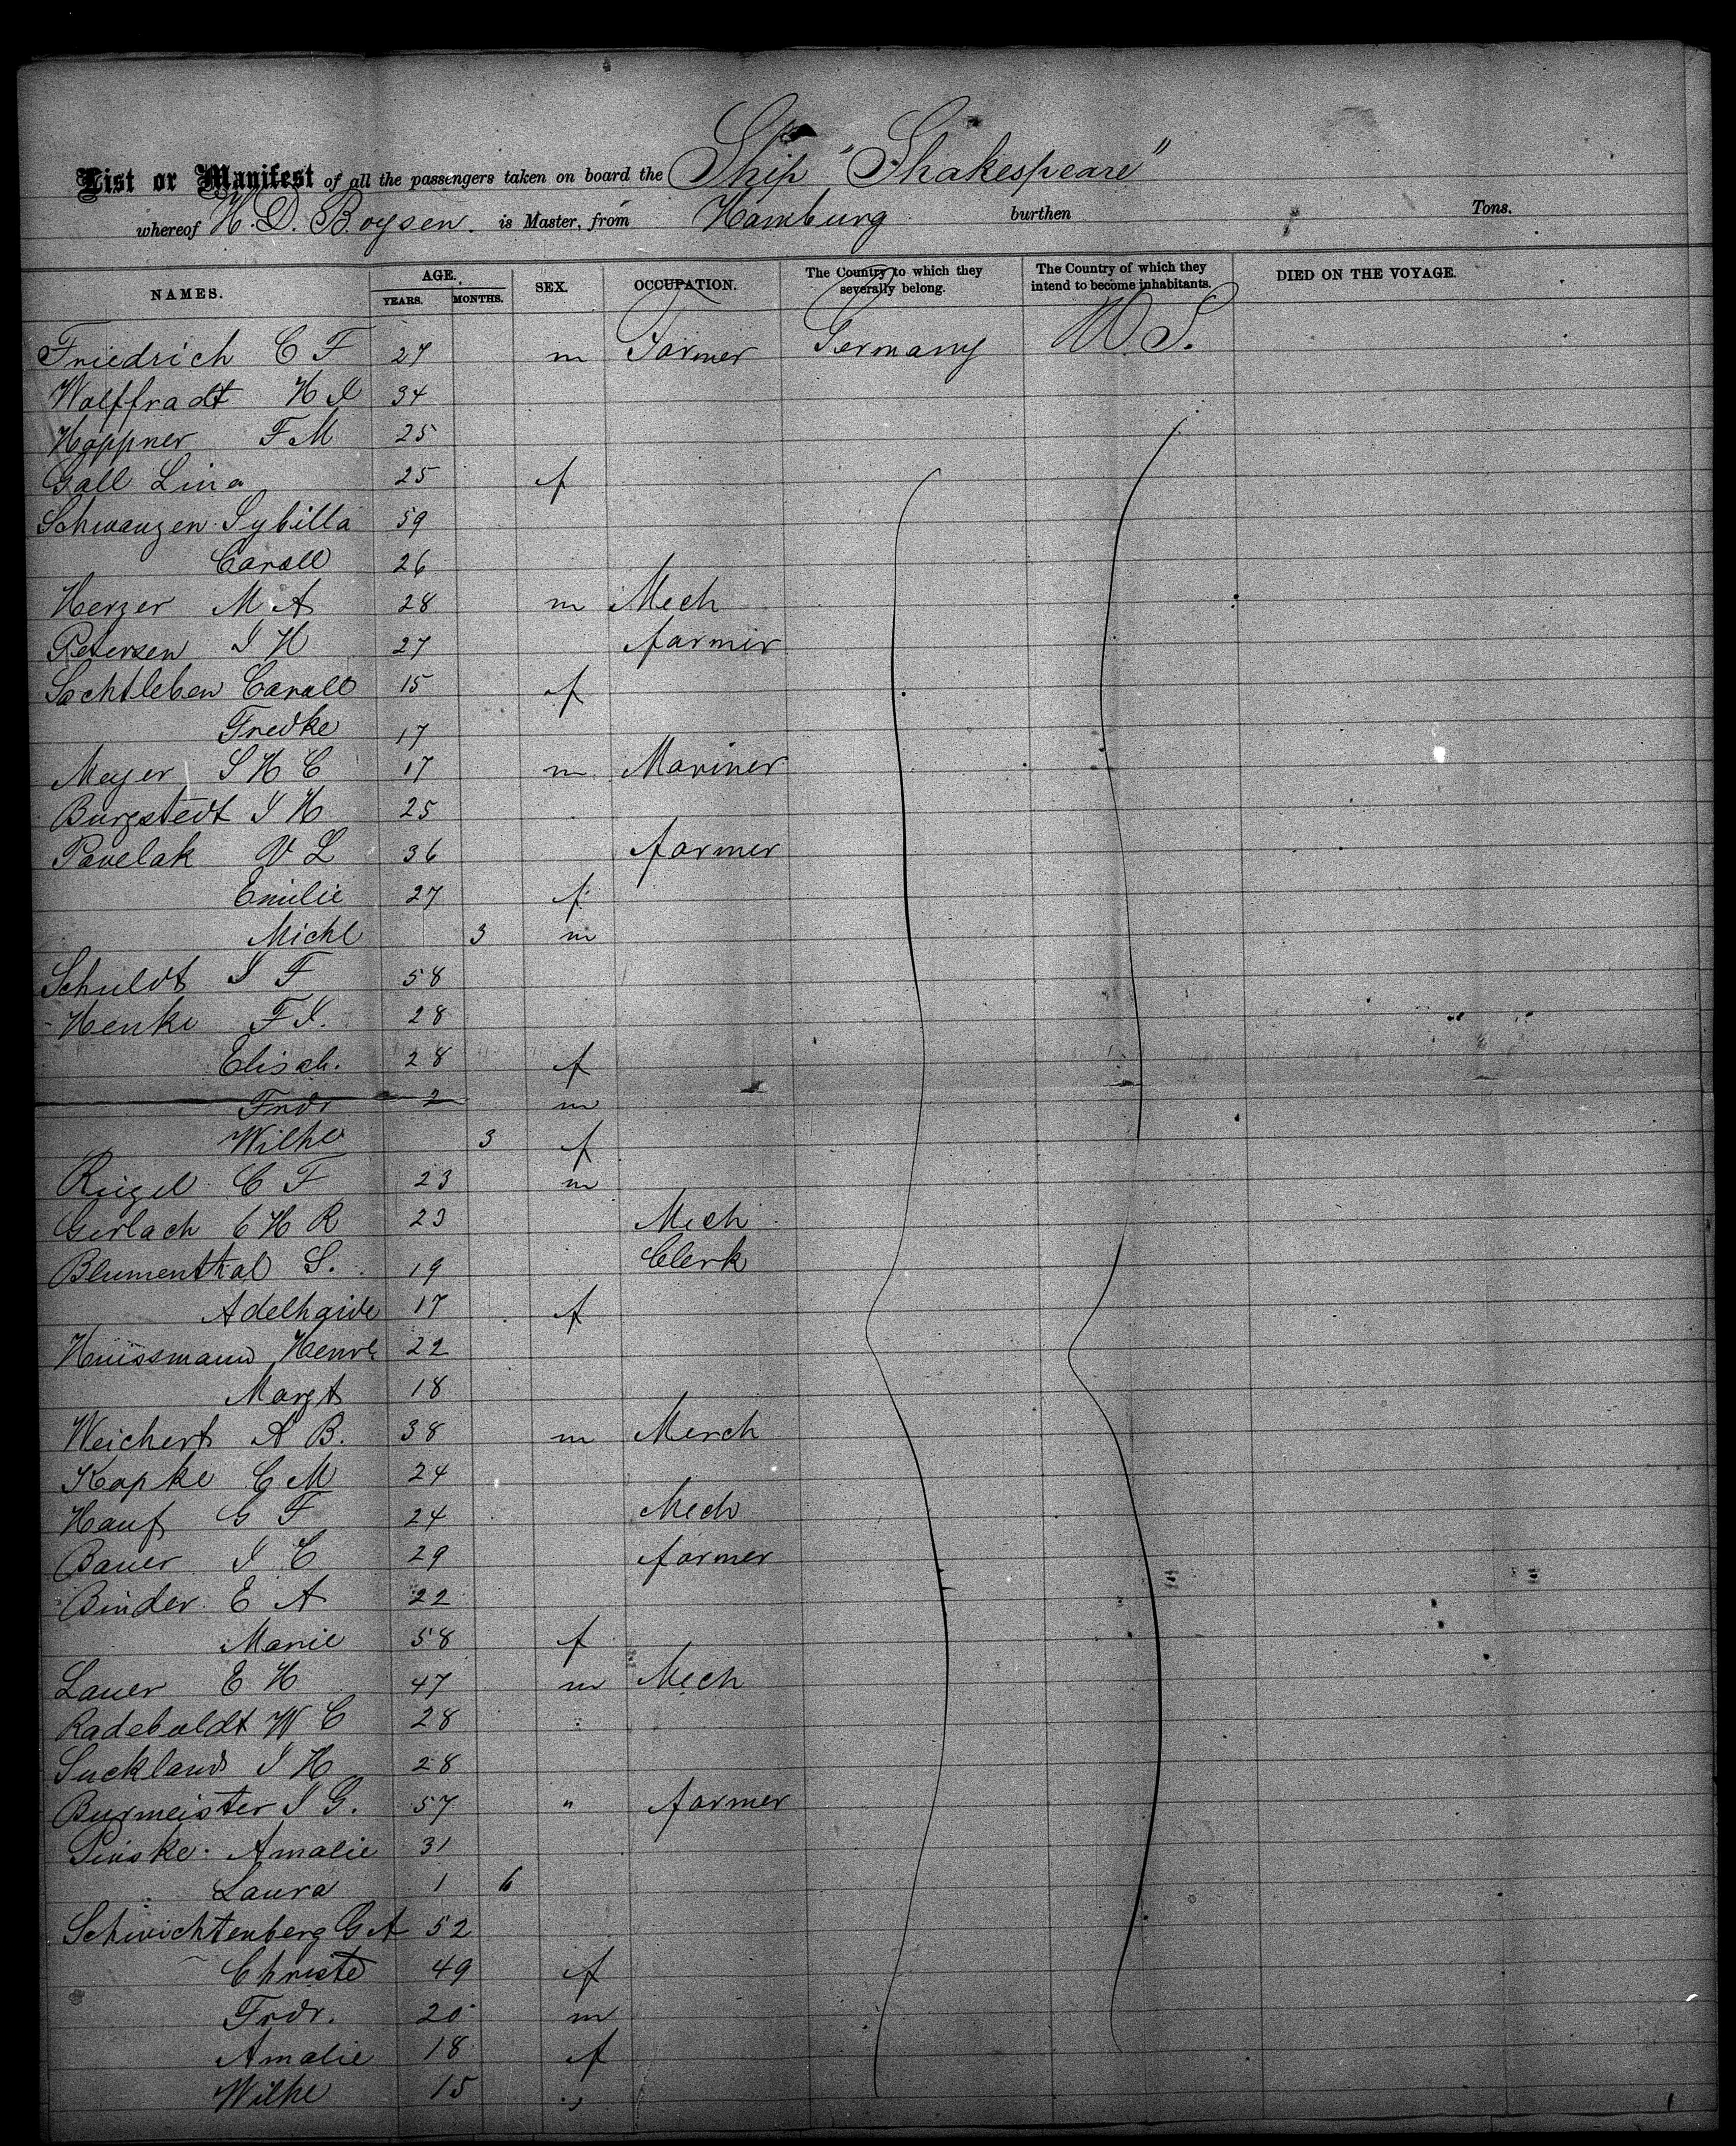 List or Manifest of all the passengers taken on board the Ship "Shakespeare"
whereof H. D. Boysen. is Master, from Hamburg burthen Tons.
NAMES. AGE. YEARS. MONTHS. SEX. OCCUPATION. The Country to which they severally belong. The Country of which they intend to become inhabitants. DIED ON THE VOYAGE.
Friedrich C F 27 m Farmer Germany U. S.
Wolffradt H I 34
Hoppner F M 25
Gall Lina 25 f
Schwanzen Sybilla 59
Caroll 26
Herzer M A 28 m Mech
Petersen I H 27 farmer
Sachtleben Caroll 15 f
Fredke 17
Meyer I H C 17 m Mariner
Burgstedt I H 25
Pavelak V L 36 farmer
Emilie 27 f
Michl 3 m
Schuldt I F 58
Henke F I. 28
Elisab. 28 f
Frdr 2 m
Wilhe 3 f
Riegel C F 23 m
Gerlach C H R 23 Mech
Blumenthal S. 19 Clerk
Adelhaide 17 f
Huissmann Henrl 22
Margt 18
Weichert A B. 38 m Merch
Kopke C M 24
Hauf G F 24 Mech
Bauer I C 29 farmer
Binder E A 22
Marie 58 f
Lauer E H 47 m Mech
Radeboldt W C 28
Suckland I H 28
Burmeister I G. 57 " farmer
Pinske Amalie 31
Laura 1 6
Schwichtenberg G A 52
Christe 49 f
Frdr. 20 m
Amalie 18 f
Wilhe 15 "